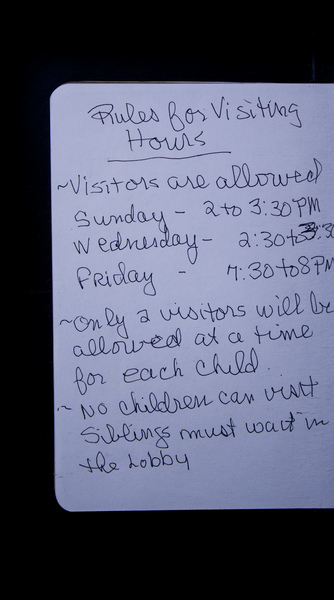 Rules for Visiting
Hours
~Visitors are allowed
Sunday - 2 to 3:30 PM
Wednesday - 2:30 to 3:30
Friday - 7:30 to 8 PM
~Only 2 visitors will be
allowed at a time
for each child.
~ No children can visit
Siblings must wait in
the Lobby